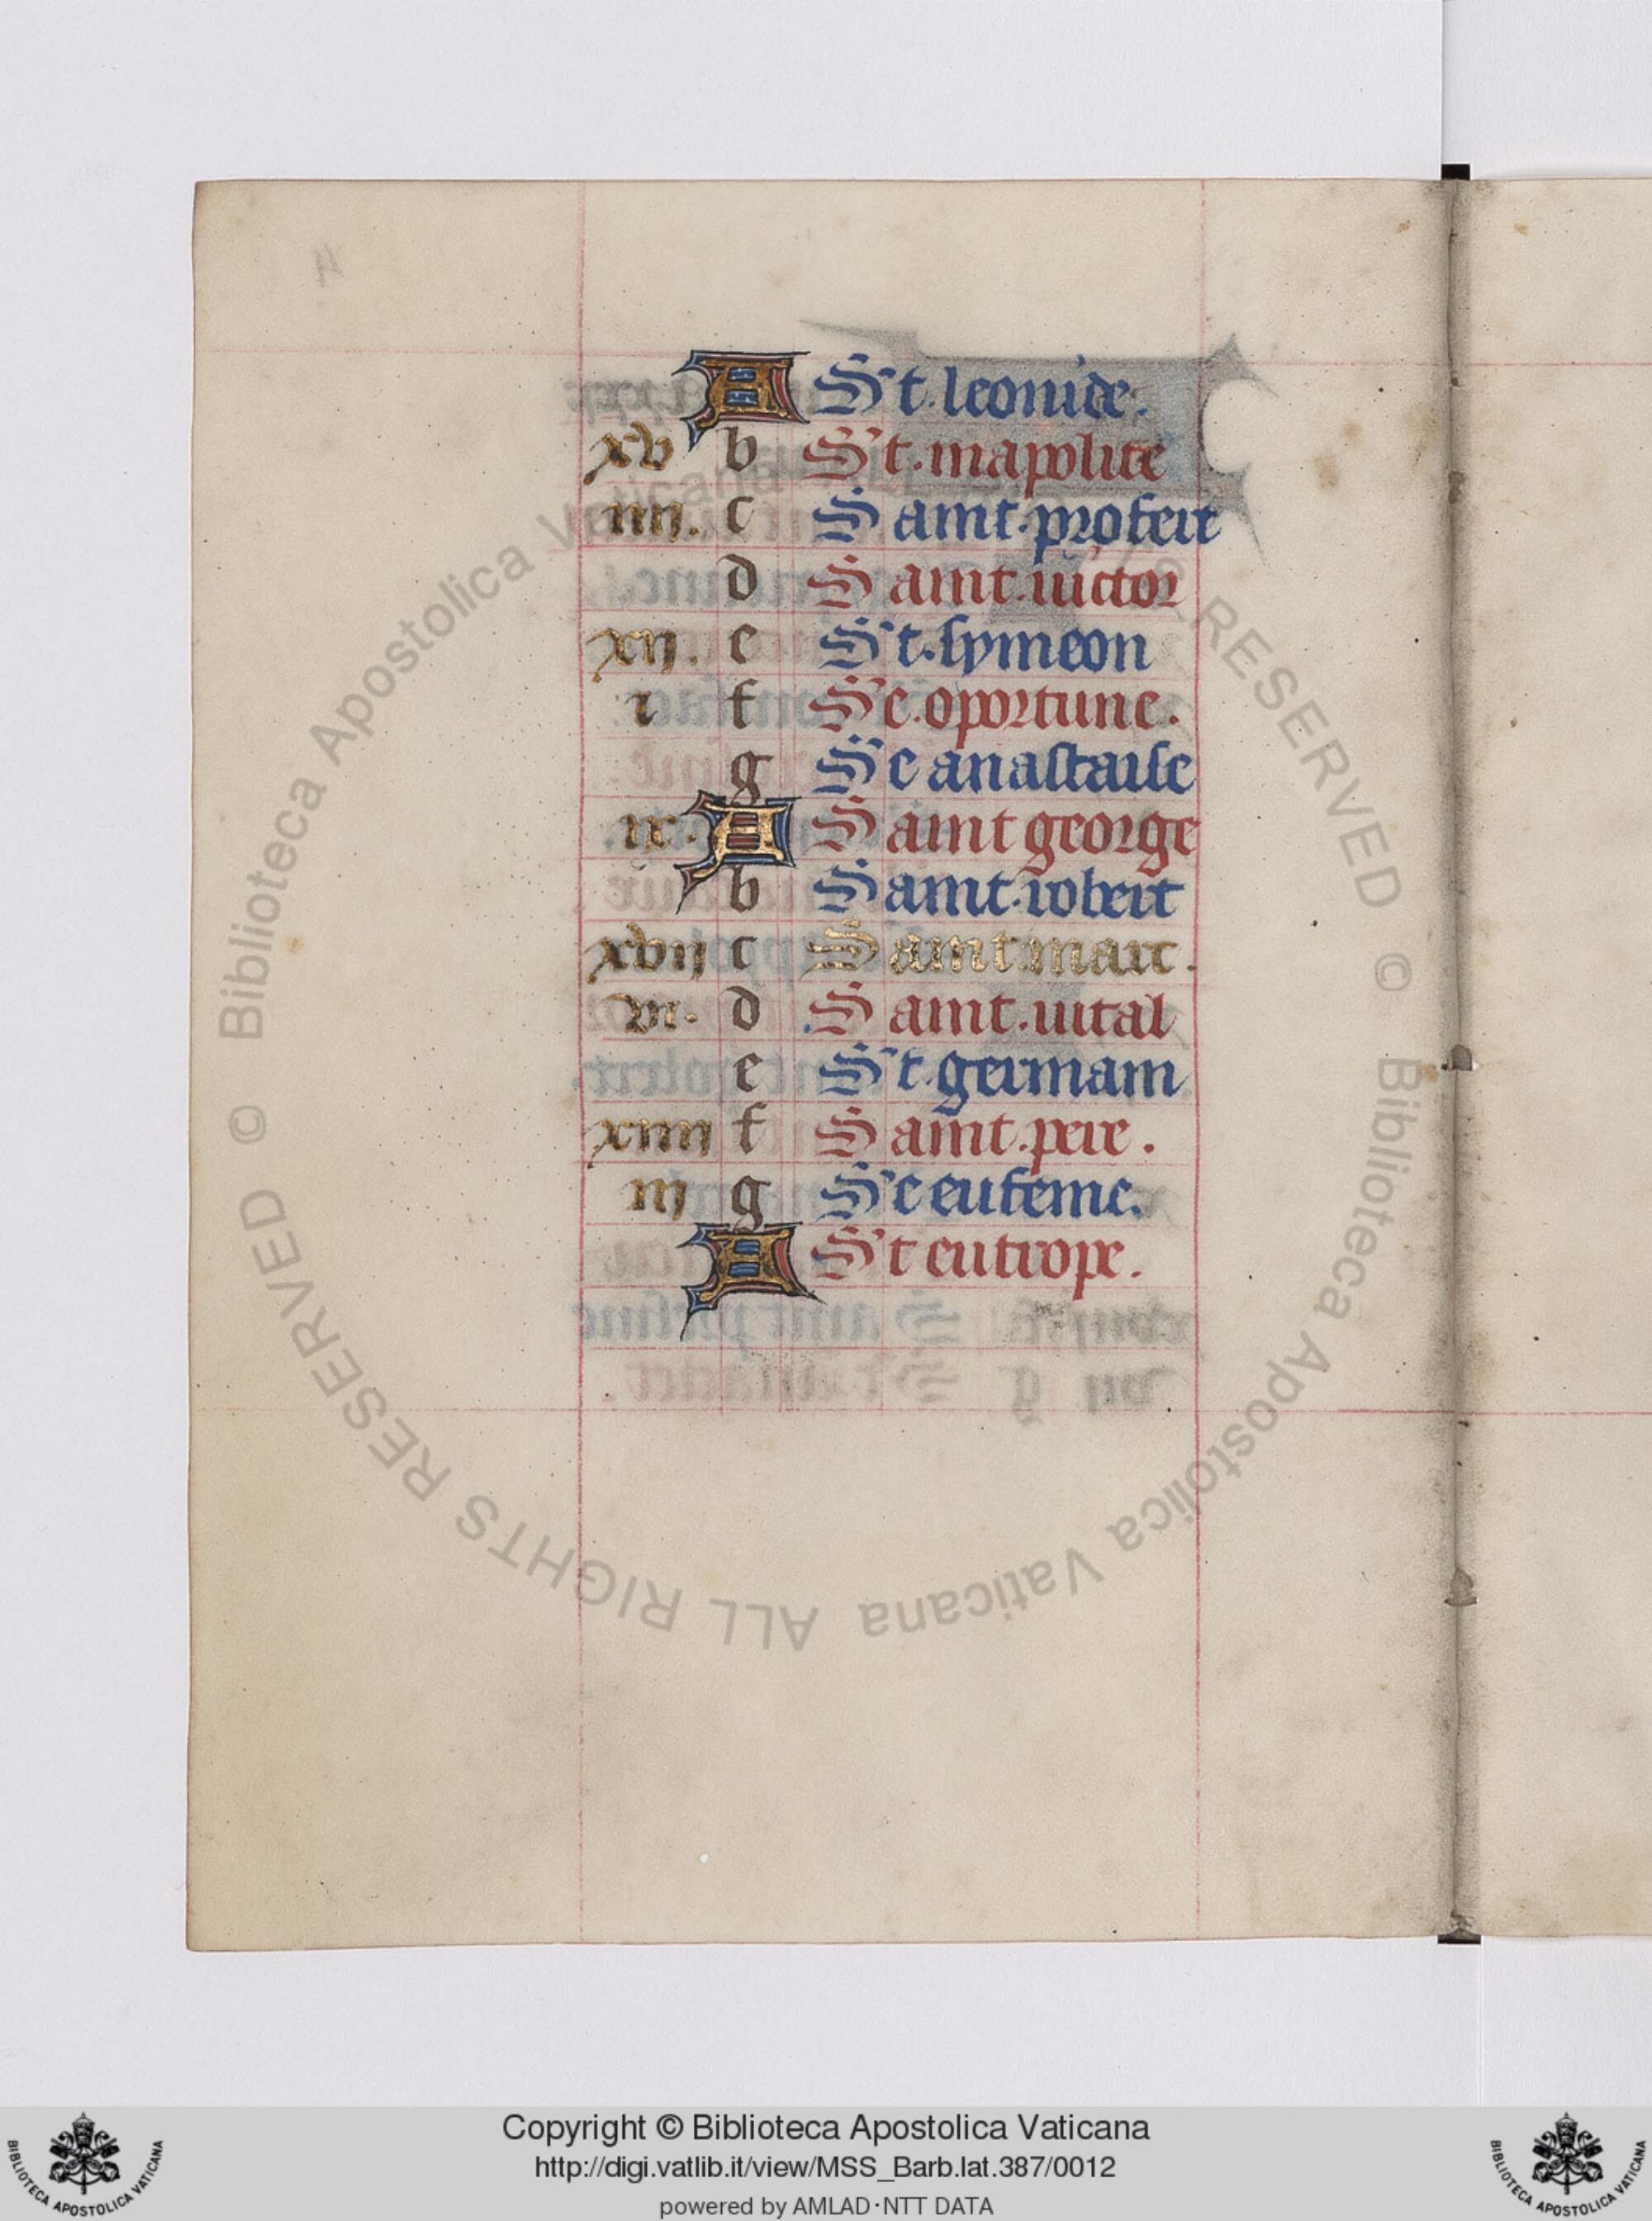 A St. leonide.
xv b St. mapolite
iiii. c Saint. profeit
d Saint. victor
xii. e St. symeon
i f Se. oportune.
g Se anastaise
ix. A Saint george
b Saint. robert
xvii c Saint. marc.
vi. d Saint. vital
e St. germain
xiiii f Saint. pere.
iii g Se eufeme.
A St eutrope.
© Biblioteca Apostolica Vaticana ALL RIGHTS RESERVED © Biblioteca Apostolica Vaticana ALL RIGHTS RESERVED
Copyright © Biblioteca Apostolica Vaticana
http://digi.vatlib.it/view/MSS_Barb.lat.387/0012
powered by AMLAD·NTT DATA
BIBLIOTECA APOSTOLICA VATICANA
BIBLIOTECA APOSTOLICA VATICANA